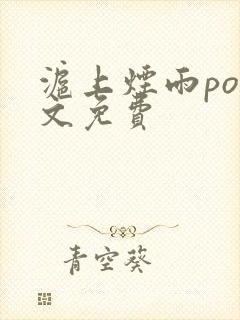 滬上煙雨po
文免費
青空葵